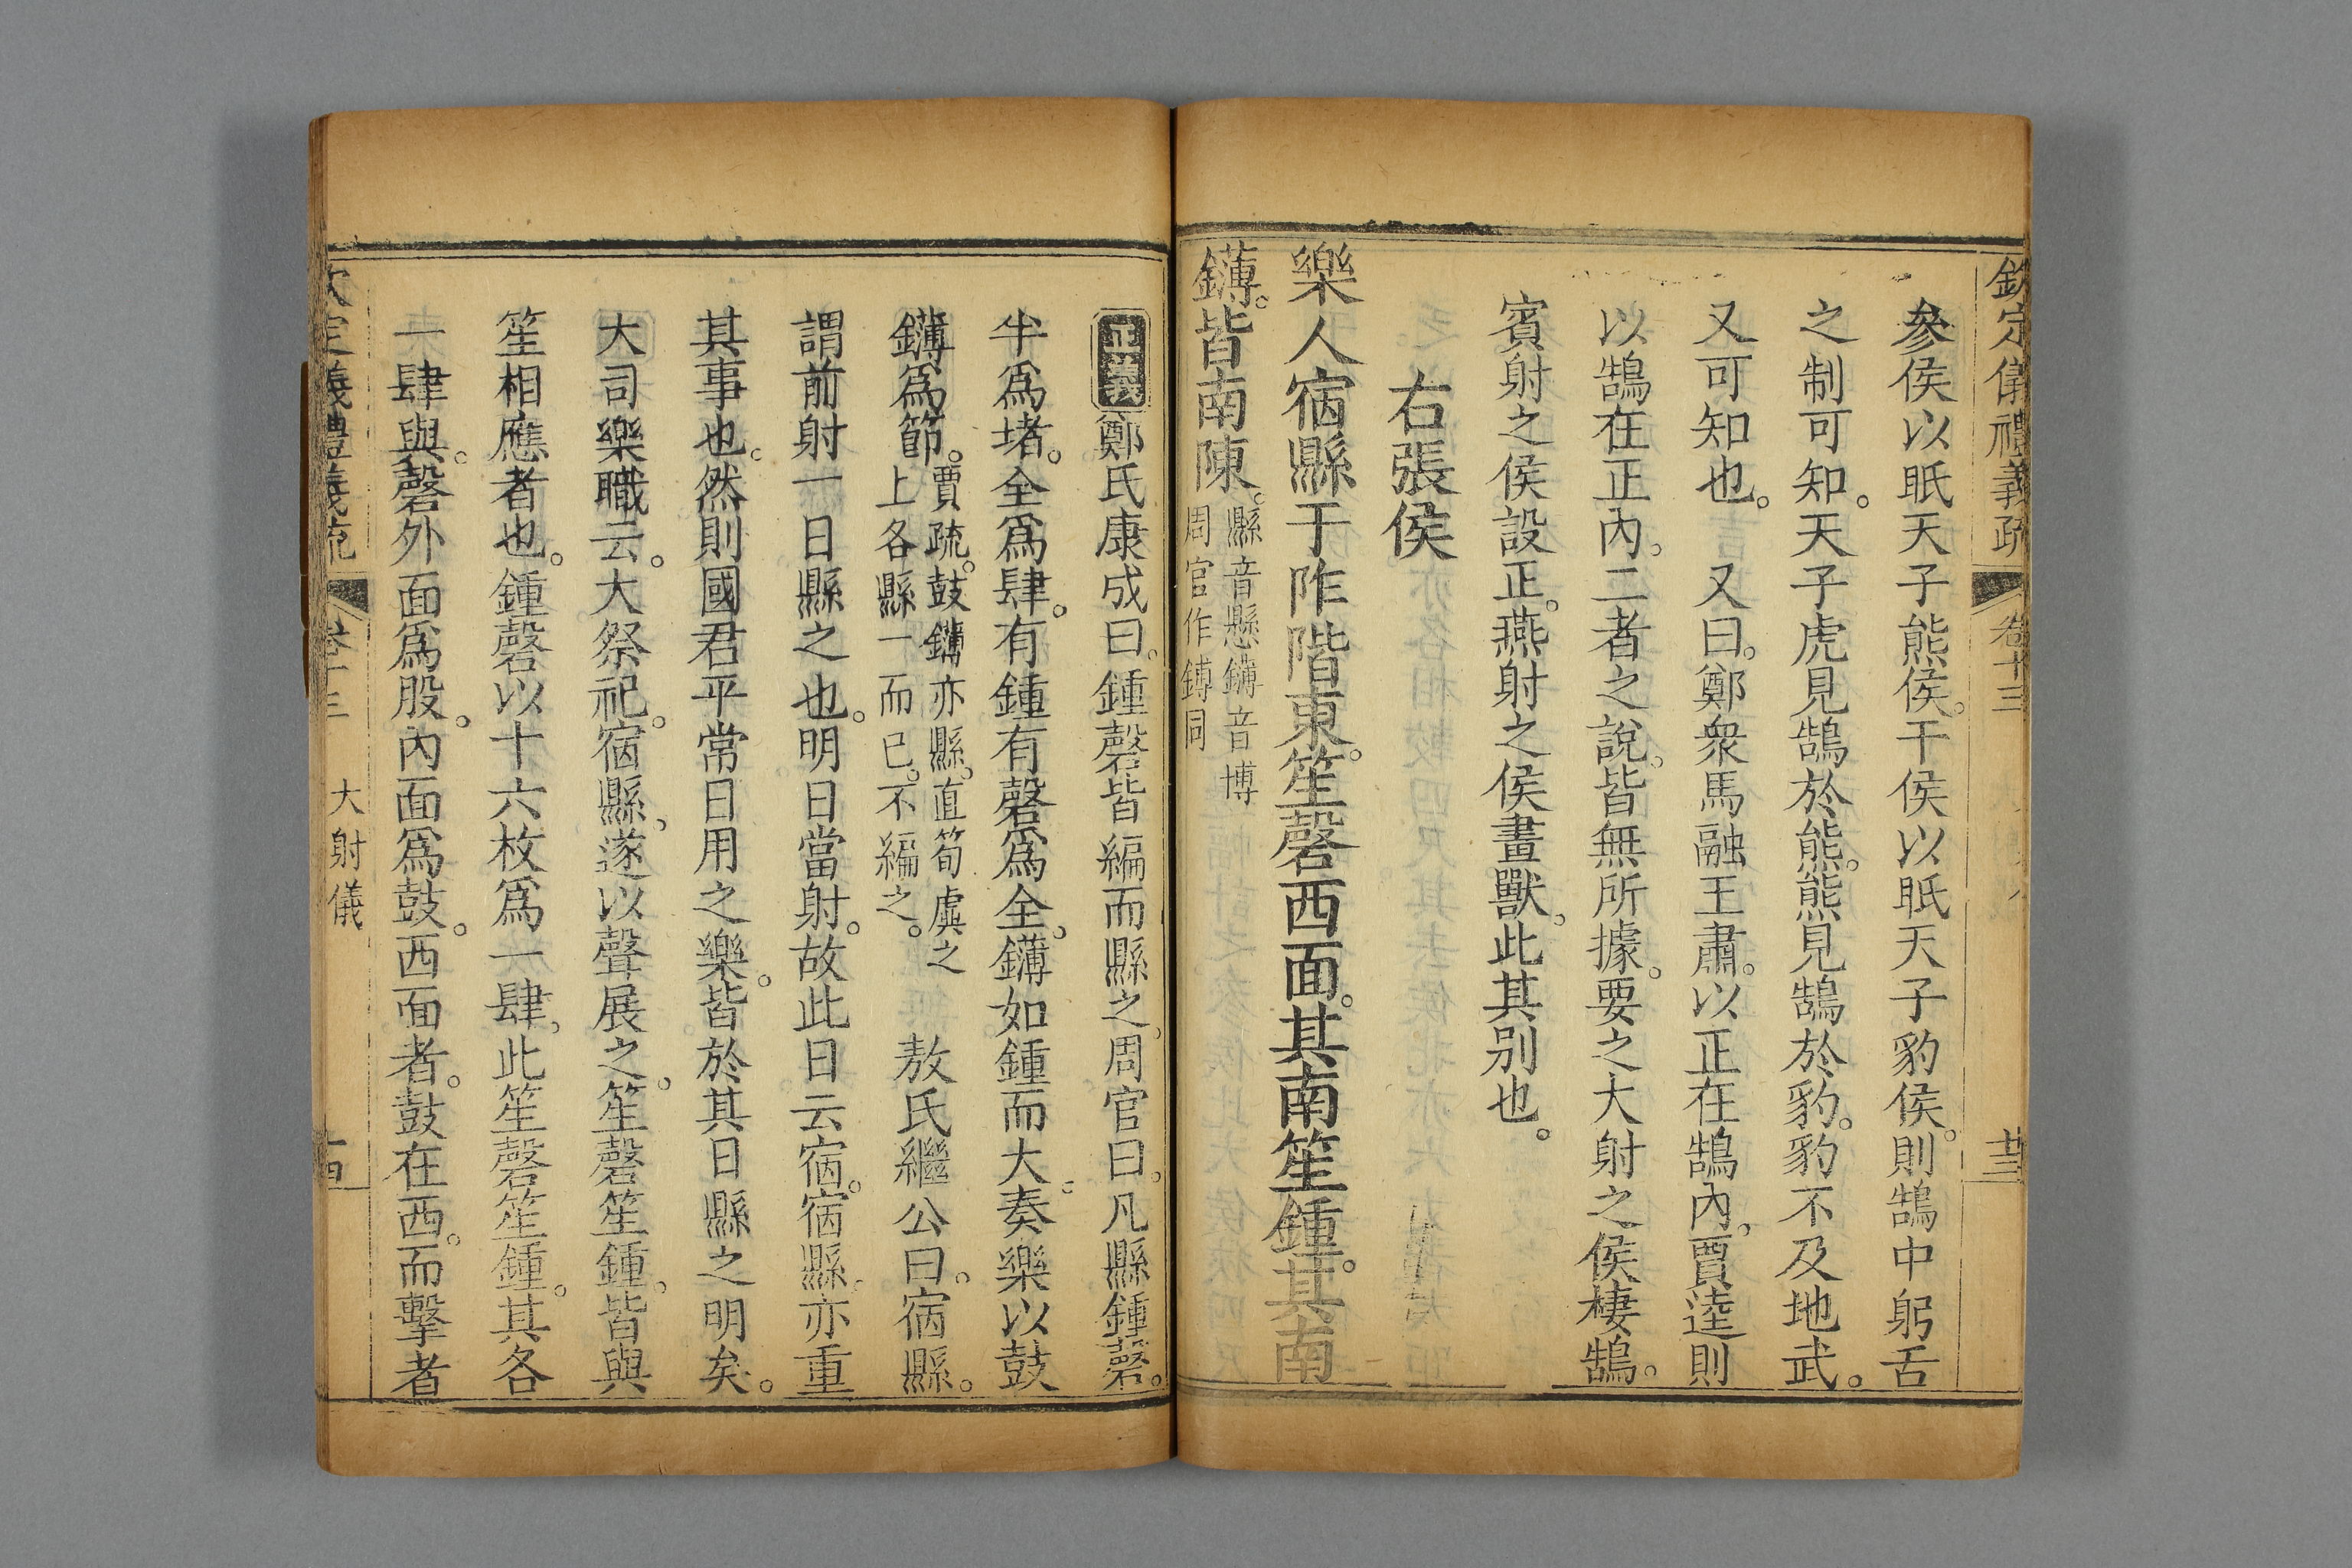 欽定儀禮義疏 卷十三 廿三
參侯以眂天子熊侯。干侯以眂天子豹侯。則鵠中躬舌
之制可知。天子虎見鵠於熊。熊見鵠於豹。豹不及地武。
又可知也。 又曰。鄭衆馬融王肅。以正在鵠內。賈逵則
以鵠在正內。二者之說。皆無所據。要之大射之侯棲鵠。
賓射之侯設正。燕射之侯畫獸。此其別也。
右張侯
樂人宿縣于阼階東。笙磬西面。其南笙鍾。其南
鑮。皆南陳。縣音懸鑮音博
周官作鎛同
正義鄭氏康成曰。鍾磬皆編而縣之。周官曰。凡縣鍾磬。
半爲堵。全爲肆。有鍾有磬爲全。鑮如鍾而大。奏樂以鼓
鑮爲節。賈疏。鼓鑮亦縣。直筍虡之
上各縣一而已。不編之。 敖氏繼公曰。宿縣。
謂前射一日縣之也。明日當射。故此日云宿。宿縣亦重
其事也。然則國君平常日用之樂。皆於其日縣之明矣。
大司樂職云。大祭祀。宿縣。遂以聲展之。笙磬笙鍾。皆與
笙相應者也。鍾磬以十六枚爲一肆。此笙磬笙鍾。其各
一肆與。磬外面爲股。內面爲鼓。西面者。鼓在西。而擊者
定義禮義疏 卷十三 大射儀